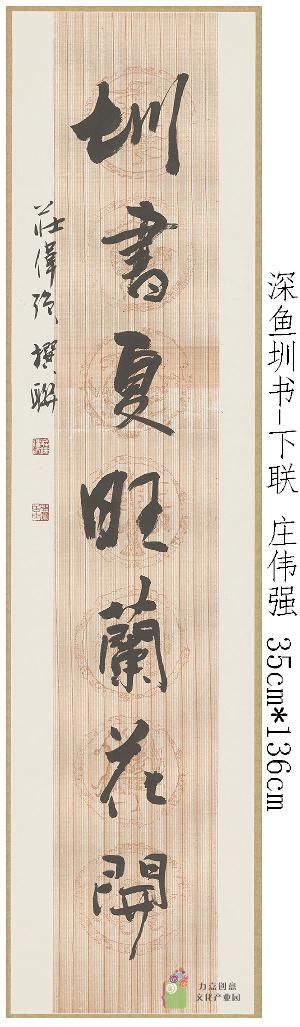 圳書夏旺蘭花開
莊偉強撰聯
深鱼圳书-下联 庄伟强 35cm*136cm
力嘉创意
文化产业园